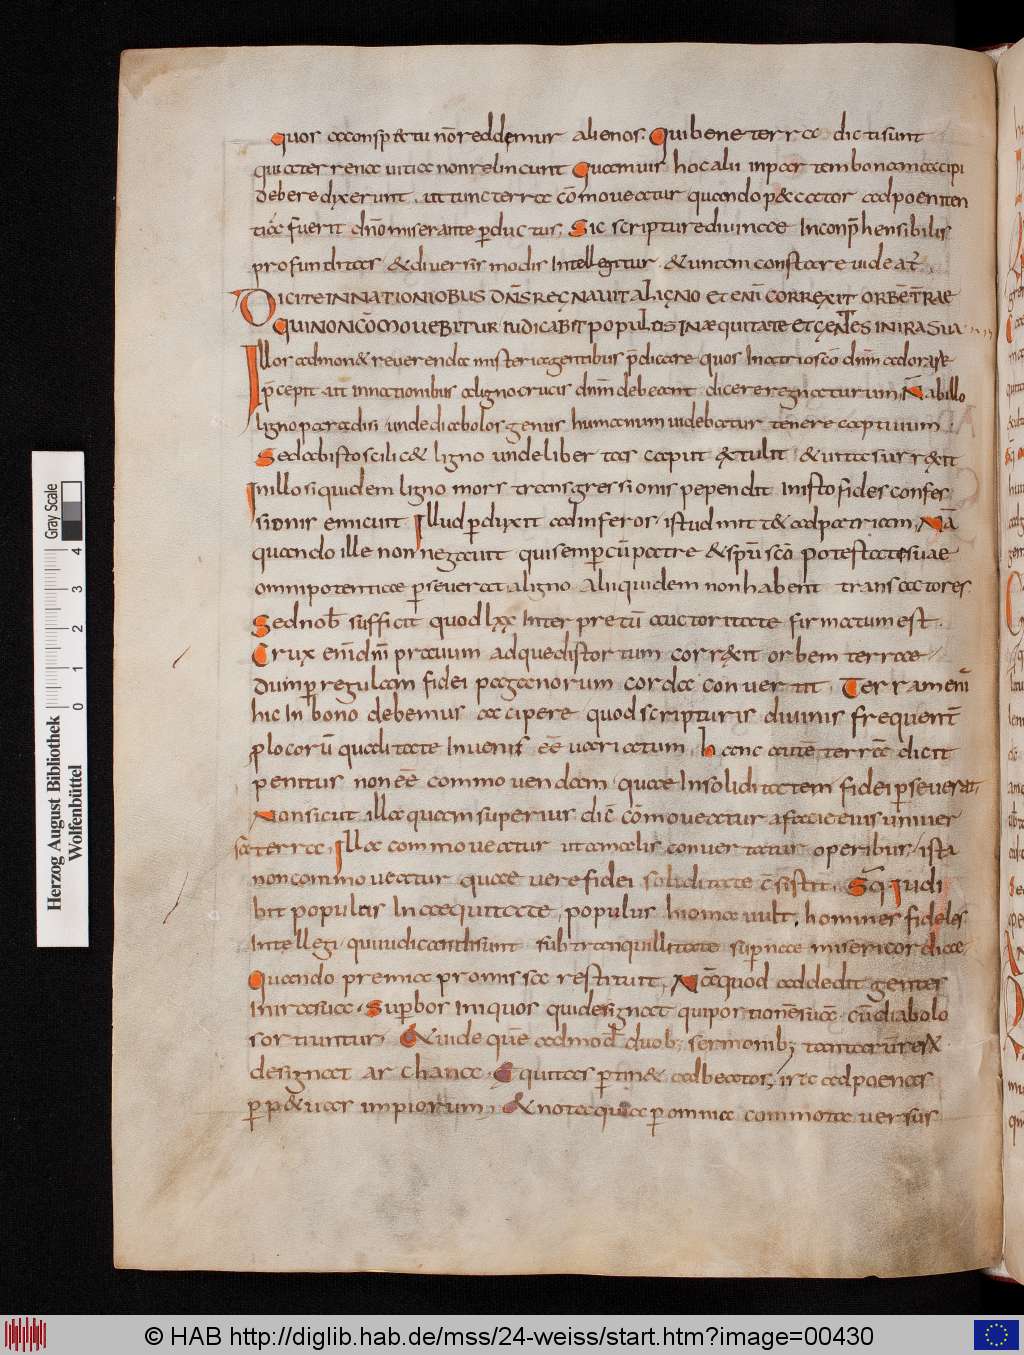 quos a conspectu nōreddemur alienos. Qui bene terrae dicti sunt
qui a terrena uitia non relincunt Quamuis hoc alii in par tem bonam accipi
debere dixerunt. ut tunc terra cōmoueatur quando peccator ad poeniten
tiā fuerit dn̄o miserante ꝑductus. Sic scripture diuinae Inconp̄hensibilis
profunditas & diuersis modis Intellegitur. & un tam constare uidea t̄.
DICITE IN NATIONIOBUS DN̄S REGNAVIT A LIGNO ET ENĪ CORREXIT ORBĒ TR̄AE
QUI NON CŌMOVEBITUR IUDICABIT POPULUS IN AEQUITATE ET GENTES IN IRA SUA
Illos admon& reuerenda misteria gentibus p̄dicare quos In atrio scō dnm̄ adorare
p̄cepit. ut in nationibus a ligno crucis dnm̄ debeant dicere regnaturum, Nā ab illo
ligno paradisi unde diabolos genus humanum uidebatur tenere captiuum
Sed ab isto scilic& ligno unde liber tas caput extulit. & uita surrexit
In illo siquidem ligno mors transgressionis pependit In isto fides confes
sionis emicuit. Illud ꝑduxit ad inferos. istud mittit& ad patriam, Nā
quando ille non negauit qui semꝑ cū patre & spū scō potestate suae
omnipotentiae ꝑseuerat a ligno Alii quidem non habent translatores.
Sed nob̄ sufficit quod lxx Inter pretū auctoritate firmatum est.
Crux enī dnī prauum adque distortum correxit orbem terrae
dum ꝑ regulam fidei paganorum corda conuertit. Terram enī
hic In bono debemus accipere quod scripturis diuinis frequent̄
ꝓ locorū qualitate Inuenis eē uariatum. hanc autē terrā dicit
penitus non eē commouendam. quae In soliditatem fidei ꝑseuerat,
Non sicut illa quam superius dic̄ cōmoueatur a facie eius uniuer
sa terra. Illa commoueatur ut a malis conuertatur operibus. ista
non commoueatur quae uere fidei soliditate c̄sistit. Sq̄ Iudi
bit populus In aequitate, populus hio ma uult. homines fideles
Intellegi. qui iudicandi sunt sub tranquillitate supnae misericordiae
Quando premia promissa restituit, Nā quod addedit gentes
In ira sua. Suꝑbos iniquos qui designat qui portionē suā. cū diabolo
sortiuntur. & uide quē admod̄ duob; sermonib; tantarū rex
designat archana. Equitas ꝑtin& ad beatos, ira ad poenas
ꝑp&uas impiorum. & nota quia ꝑ omnia commota uersus
Herzog August Bibliothek
Wolfenbüttel
0 1 2 3 4
Gray Scale
© HAB http://diglib.hab.de/mss/24-weiss/start.htm?image=00430